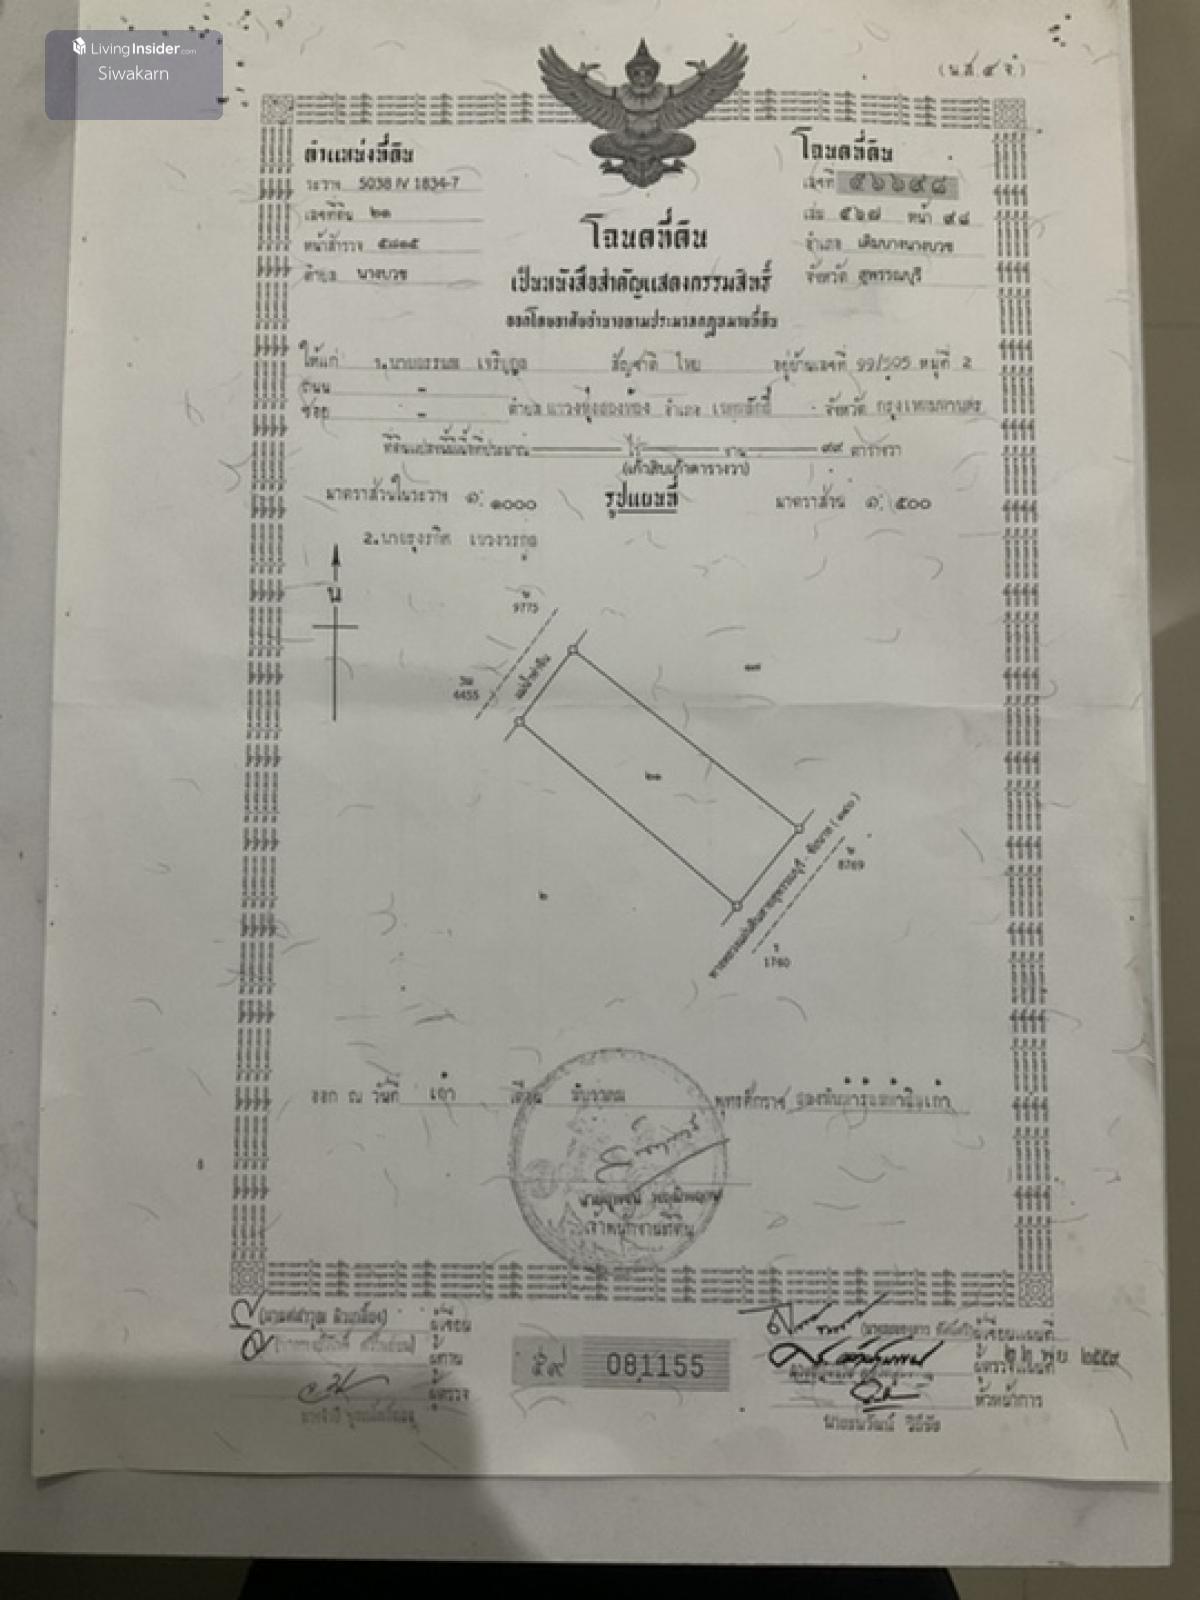 LivingInsider.com
Siwakarn
(น.ส. ๔ จ.)
ตำแหน่งที่ดิน
ระวาง 5038 IV 1834-7
เลขที่ดิน ๒๑
หน้าสำรวจ ๕๘๑๕
ตำบล นางบวช
โฉนดที่ดิน
เลขที่ ๕๖๖๙๘
เล่ม ๕๖๗ หน้า ๙๘
อำเภอ เดิมบางนางบวช
จังหวัด สุพรรณบุรี
โฉนดที่ดิน
เป็นหนังสือสำคัญแสดงกรรมสิทธิ์
ออกโดยอาศัยอำนาจตามประมวลกฎหมายที่ดิน
ให้แก่ สัญชาติ ไทย อยู่บ้านเลขที่ 99/505 หมู่ที่ 2
ถนน -
ซอย - ตำบล แขวงทุ่งสองห้อง อำเภอ เขตหลักสี่ จังหวัด กรุงเทพมหานคร
ที่ดินแปลงนี้มีเนื้อที่ประมาณ ไร่ งาน ๙๙ ตารางวา
(เก้าสิบเก้าตารางวา)
มาตราส่วนในระวาง ๑: ๑๐๐๐ รูปแผนที่ มาตราส่วน ๑: ๕๐๐
น
9775
4455
แม่น้ำท่าจีน
๑๗
๒๑
๒
ทางหลวงแผ่นดินสายสุพรรณบุรี - ชัยนาท (๓๔๐)
8769
1760
ออก ณ วันที่ เก้า เดือน ธันวาคม พุทธศักราช สองพันห้าร้อยห้าสิบเก้า
เจ้าพนักงานที่ดิน
ผู้เขียน
ผู้ทาน
ผู้ตรวจ
๕๙ 081155
ผู้เขียนแผนที่
ผู้ตรวจแผนที่
๒๒ พ.ย. ๒๕๕๙
หัวหน้าการ